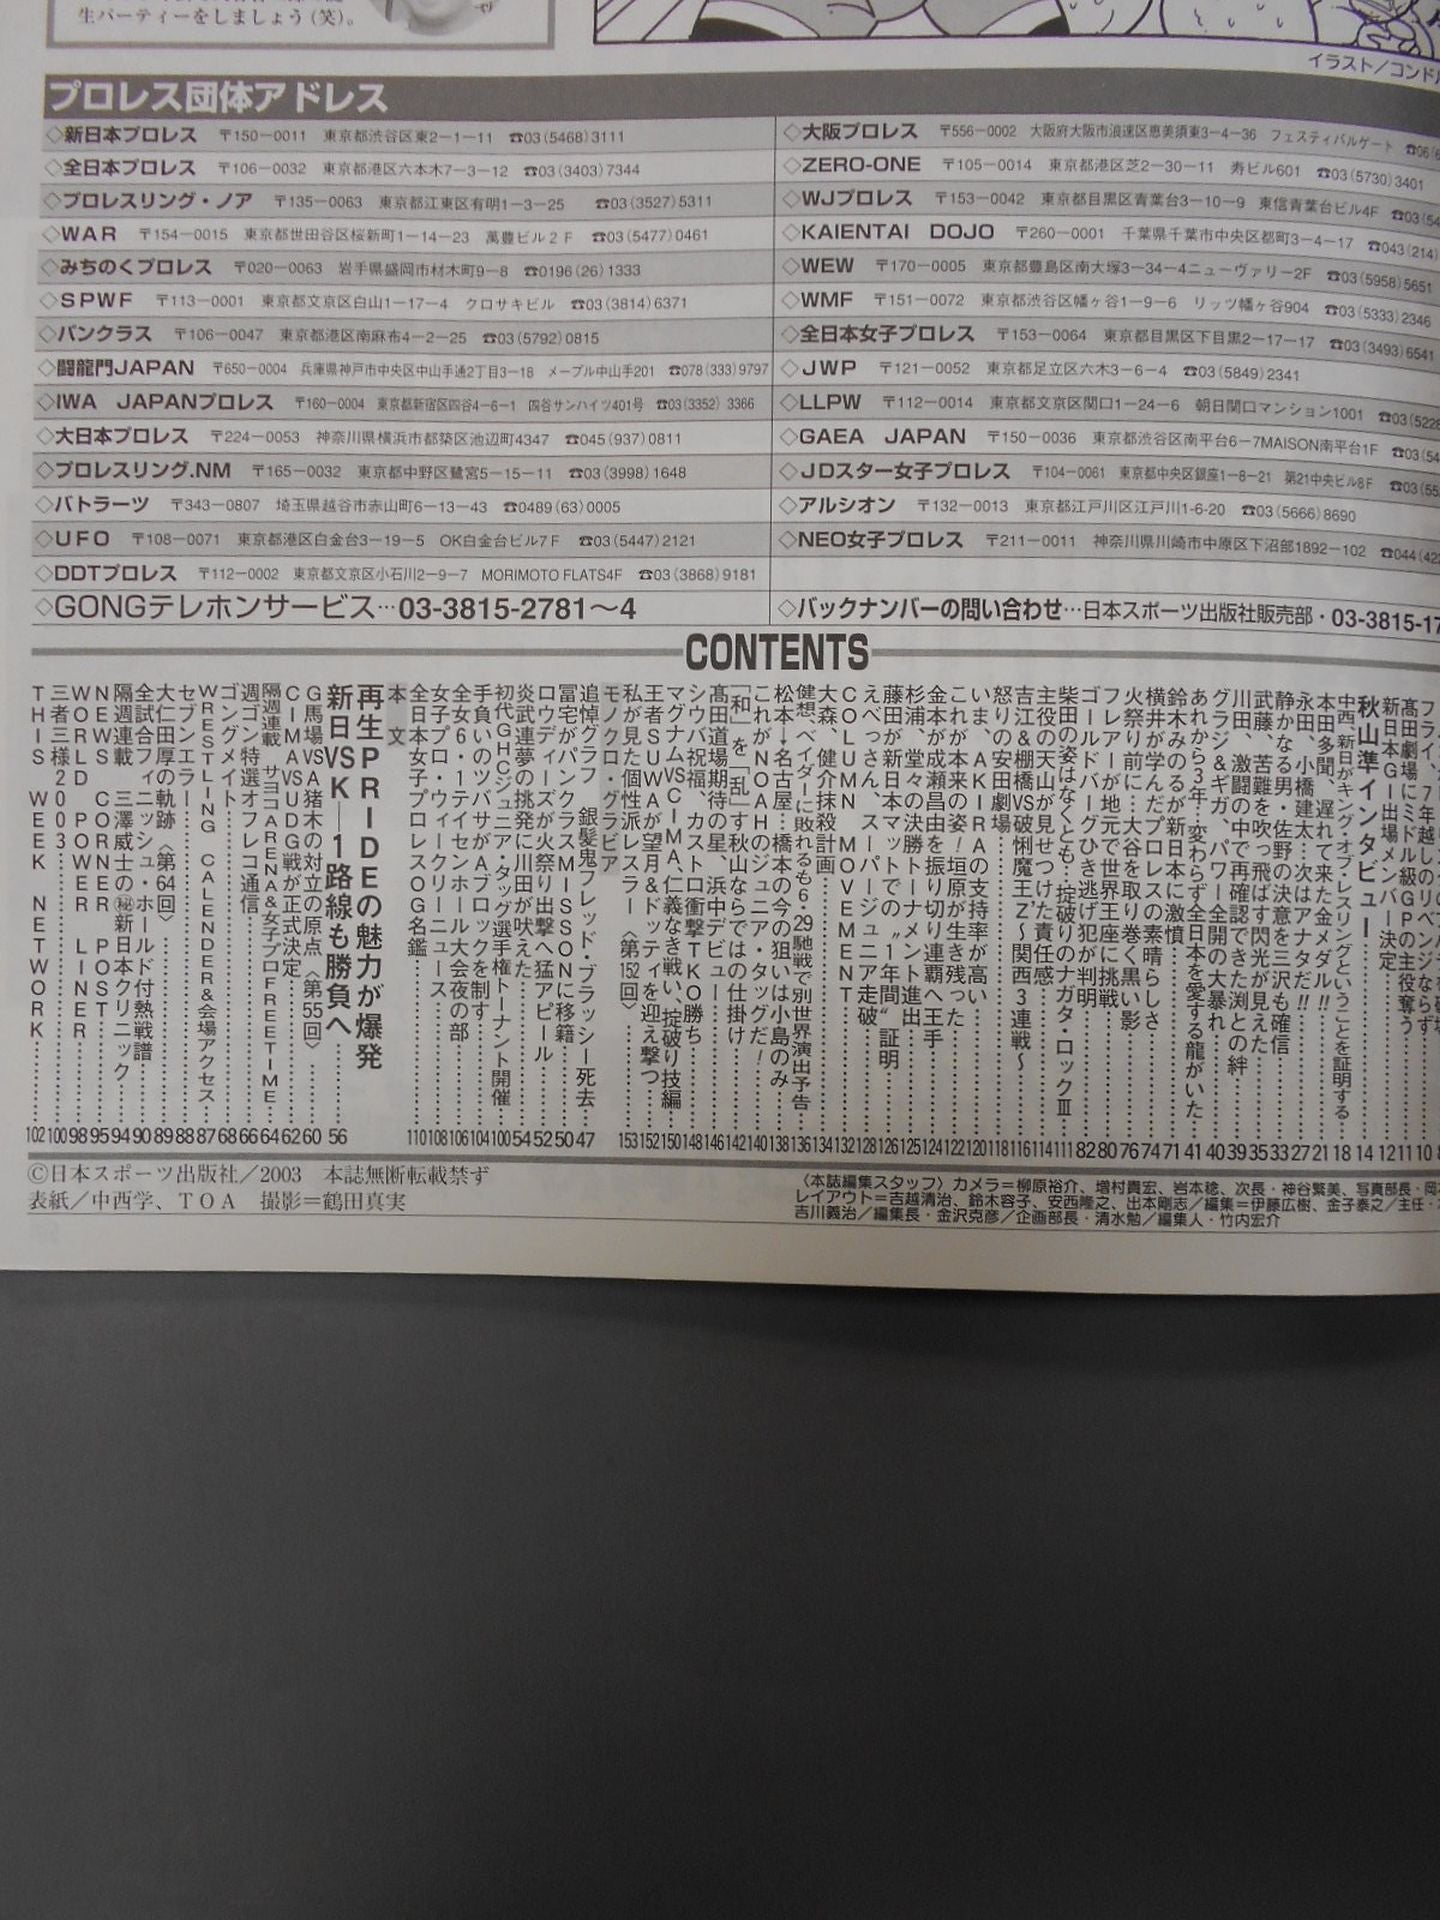 生パーティーをしましょう（笑）。
イラスト／コンドル
プロレス団体アドレス
◇新日本プロレス　〒150－0011　東京都渋谷区東2－1－11　☎03(5468)3111
◇全日本プロレス　〒106－0032　東京都港区六本木7－3－12　☎03(3403)7344
◇プロレスリング・ノア　〒135－0063　東京都江東区有明1－3－25　☎03(3527)5311
◇WAR　〒154－0015　東京都世田谷区桜新町1－14－23　萬豊ビル２Ｆ　☎03(5477)0461
◇みちのくプロレス　〒020－0063　岩手県盛岡市材木町9－8　☎0196(26)1333
◇SPWF　〒113－0001　東京都文京区白山1－17－4　クロサキビル　☎03(3814)6371
◇パンクラス　〒106－0047　東京都港区南麻布4－2－25　☎03(5792)0815
◇闘龍門JAPAN　〒650－0004　兵庫県神戸市中央区中山手通2丁目3－18　メープル中山手201　☎078(333)9797
◇IWA　JAPANプロレス　〒160－0004　東京都新宿区四谷4－6－1　四谷サンハイツ401号　☎03(3352)3366
◇大日本プロレス　〒224－0053　神奈川県横浜市都築区池辺町4347　☎045(937)0811
◇プロレスリング.NM　〒165－0032　東京都中野区鷺宮5－15－11　☎03(3998)1648
◇バトラーツ　〒343－0807　埼玉県越谷市赤山町6－13－43　☎0489(63)0005
◇UFO　〒108－0071　東京都港区白金台3－19－5　OK白金台ビル7Ｆ　☎03(5447)2121
◇DDTプロレス　〒112－0002　東京都文京区小石川2－9－7　MORIMOTO FLATS4F　☎03(3868)9181
◇GONGテレホンサービス…03-3815-2781～4
◇大阪プロレス　〒556－0002　大阪府大阪市浪速区恵美須東3－4－36　フェスティバルゲート　☎06(6
◇ZERO-ONE　〒105－0014　東京都港区芝2－30－11　寿ビル601　☎03(5730)3401
◇WJプロレス　〒153－0042　東京都目黒区青葉台3－10－9　東信青葉台ビル4F　☎03(54
◇KAIENTAI　DOJO　〒260－0001　千葉県千葉市中央区都町3－4－17　☎043(214)
◇WEW　〒170－0005　東京都豊島区南大塚3－34－4ニューヴァリー2F　☎03(5958)5651
◇WMF　〒151－0072　東京都渋谷区幡ヶ谷1－9－6　リッツ幡ヶ谷904　☎03(5333)2346
◇全日本女子プロレス　〒153－0064　東京都目黒区下目黒2－17－17　☎03(3493)6541
◇JWP　〒121－0052　東京都足立区六木3－6－4　☎03(5849)2341
◇LLPW　〒112－0014　東京都文京区関口1－24－6　朝日関口マンション1001　☎03(5228
◇GAEA　JAPAN　〒150－0036　東京都渋谷区南平台6－7MAISON南平台1F　☎03(54
◇JDスター女子プロレス　〒104－0061　東京都中央区銀座1－8－21　第21中央ビル8Ｆ　☎03(55
◇アルシオン　〒132－0013　東京都江戸川区江戸川1-6-20　☎03(5666)8690
◇NEO女子プロレス　〒211－0011　神奈川県川崎市中原区下沼部1892－102　☎044(422
◇バックナンバーの問い合わせ…日本スポーツ出版社販売部・03-3815-17
CONTENTS
フライ、7年越しのリベンジならず……10
髙田劇場にミドル級GPの主役奪う……11
新日本G－出場メンバー決定……12
秋山準インタビュー……14
中西、新日がキング・オブ・レスリングということを証明する……18
本田多聞、遅れて来た金メダル!!……21
永田、小橋建太…次はアナタだ!!……27
静かなる男・佐野の決意を三沢も確信……33
武藤、苦難を吹っ飛ばす閃光が見えた……35
川田、激闘の中で再確認できた渕との絆……39
グラジ＆ギガ、パワー全開の大暴れ……40
あれから3年…変わらず全日本を愛する龍がいた……41
鈴木みのるが新日本に激憤……71
横井が学んだプロレスの素晴らしさ……74
火祭り前に…大谷を取り巻く黒い影……76
フレアーが地元で世界王座に挑戦……80
ゴールドバーグひき逃げ犯が判明……82
柴田の姿はなくとも…掟破りのナガタ・ロックⅢ……111
主役の天山が見せつけた責任感……114
吉江＆棚橋VS破悧魔王’Z～関西3連戦～……116
怒りの安田劇場……118
いま、AKIRAの支持率が高い……120
これが本来の姿！垣原が生き残った……122
金本が成瀬昌由を振り切り連覇へ王手……124
杉浦、堂々の決勝トーナメント進出……125
藤田が新日本マットでの“1年間”証明……126
えべっさん、スーパージュニア走破……128
COLUMN　MOVEMENT……132
大森、健介抹殺計画……134
健想、ベイダーに敗れるも6・29馳戦で別世界演出予告……136
松本→名古屋…橋本の今の狙いは小島のみ……138
これがNOAHのジュニア・タッグだ！……140
「和」を「乱」す秋山ならではの仕掛け……142
髙田道場期待の星、浜中デビュー……146
シウバ祝福、カストロ衝撃TKO勝ち……148
マグナムVSCIMA、仁義なき戦い、掟破り技編……150
王者SUWAが望月＆ドッティを迎え撃つ……152
私が見た個性派レスラー〈第152回〉……153
モノクロ・グラビア
追悼グラフ　銀髪鬼フレッド・ブラッシー死去……47
冨宅がパンクラスMISSIONに移籍……50
ロウディーズが火祭り出撃へ猛アピール……52
炎武連夢の挑発に川田が吠えた……54
初代GHCジュニア・タッグ選手権トーナメント開催……100
手負いのツバサがAブロックを制す……104
全女6・1ティセンホール大会夜の部……106
女子プロ・ウィークリーニュース……108
全日本女子プロレスOG名鑑……110
本　文
再生PRIDEの魅力が爆発
新日VSK－1路線も勝負へ……56
G馬場VSA猪木の対立の原点〈第55回〉……60
CIMAVSUDG戦が正式決定……62
隔週連載　サヨコARENA＆女子プロFREETIME……64
週ゴン特選オフレコ通信……66
ゴングメイト……68
WRESTLING　CALENDER＆会場アクセス……87
セブンエラー……88
大仁田厚の軌跡〈第64回〉……89
全試合フィニッシュ・ホールド付熱戦譜……90
隔週連載　三澤威士の㊙新日本クリニック……94
NEWS　CORNER　POST……95
WORLD　POWER　LINER……98
三者三様2003……100
THIS　WEEK　NETWORK……102
©日本スポーツ出版社／2003　本誌無断転載禁ず
表紙／中西学、ＴＯＡ　撮影＝鶴田真実
〈本誌編集スタッフ〉カメラ＝柳原裕介、増村貴宏、岩本稔、次長・神谷繁美、写真部長・岡
レイアウト＝吉越清治、鈴木容子、安西隆之、出本剛志／編集＝伊藤広樹、金子泰之／主任・
吉川義治／編集長・金沢克彦／企画部長・清水勉／編集人・竹内宏介